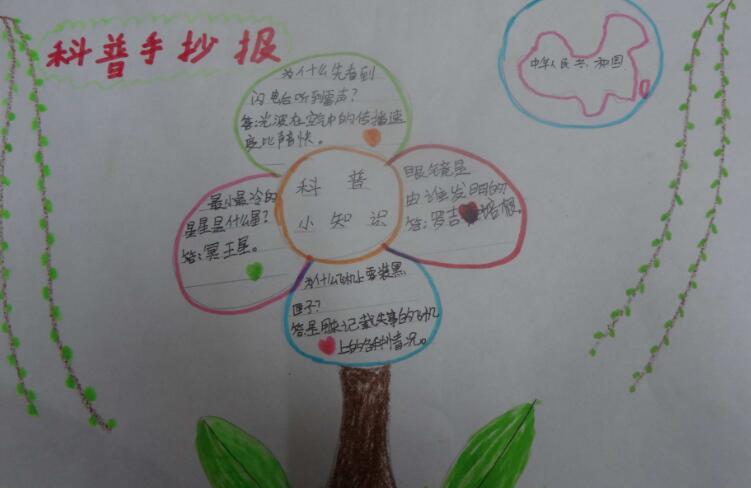 科普手抄报
中华人民共和国
为什么先看到
闪电后听到雷声？
答：光波在空气中的传播速
度比声音快。
科普
小知识
眼镜是
由谁发明的
答：罗吉 培根。
最小最冷的
星星是什么星？
答：冥王星。
为什么飞机上要装黑
匣子？
答是用来记载失事的飞机
上的各种情况。